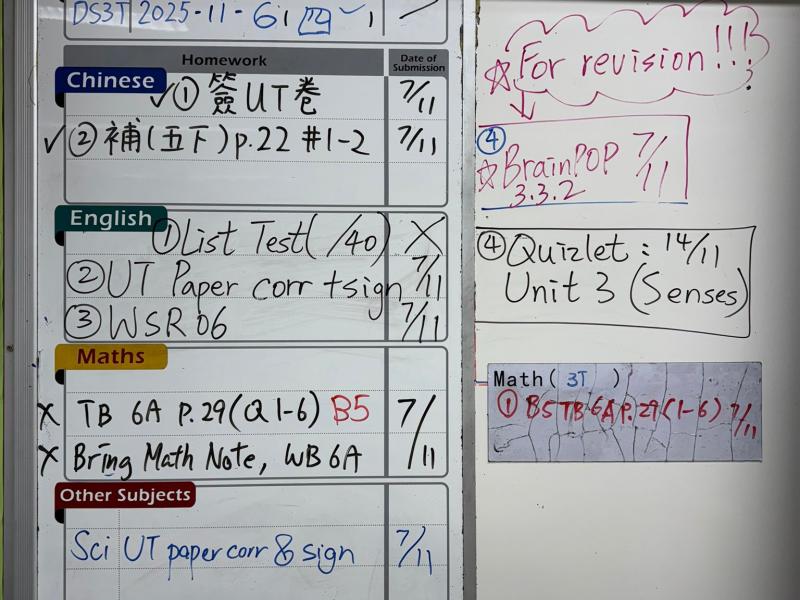 DS3T 2025-11-6 (四)
Homework
Date of Submission
Chinese
✓① 簽UT卷 7/11
✓② 補(五下)p.22 #1-2 7/11
English
①List Test( /40) X
②UT Paper corr +sign 7/11
③WSR06 7/11
Maths
X TB 6A P.29(Q1-6) B5 7/11
X Bring Math Note, WB 6A
Other Subjects
Sci UT paper corr & sign 7/11
☆For revision!!!
④
☆BrainPOP 7/11
3.3.2
④Quizlet : 14/11
Unit 3 (Senses)
Math( 3T )
① B5 TB 6A P.29(1-6) 7/11